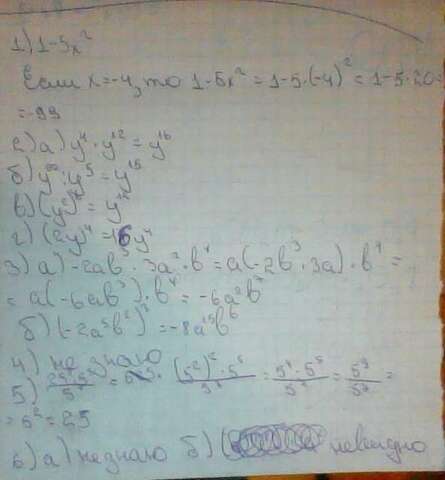 1) 1-5x²
Если x=-4, то 1-5x² = 1-5·(-4)² = 1-5·20=
=-99
2) а) y⁴·y¹² = y¹⁶
б) y²⁰:y⁵ = y¹⁵
в) (y²)⁸ = y¹⁶
г) (2y)⁴ = 16y⁴
3) а) -2ab³·3a²·b⁴ = a(-2b³·3a)·b⁴ =
= a(-6ab³)·b⁴ = -6a²b⁷
б) (-2a⁵b²)³ = -8a¹⁵b⁶
4) не знаю
5) (5²)²·5⁵/5⁷ = 5⁴·5⁵/5⁷ = 5⁹/5⁷ =
= 5² = 25
6) а) не знаю б) ( невидно